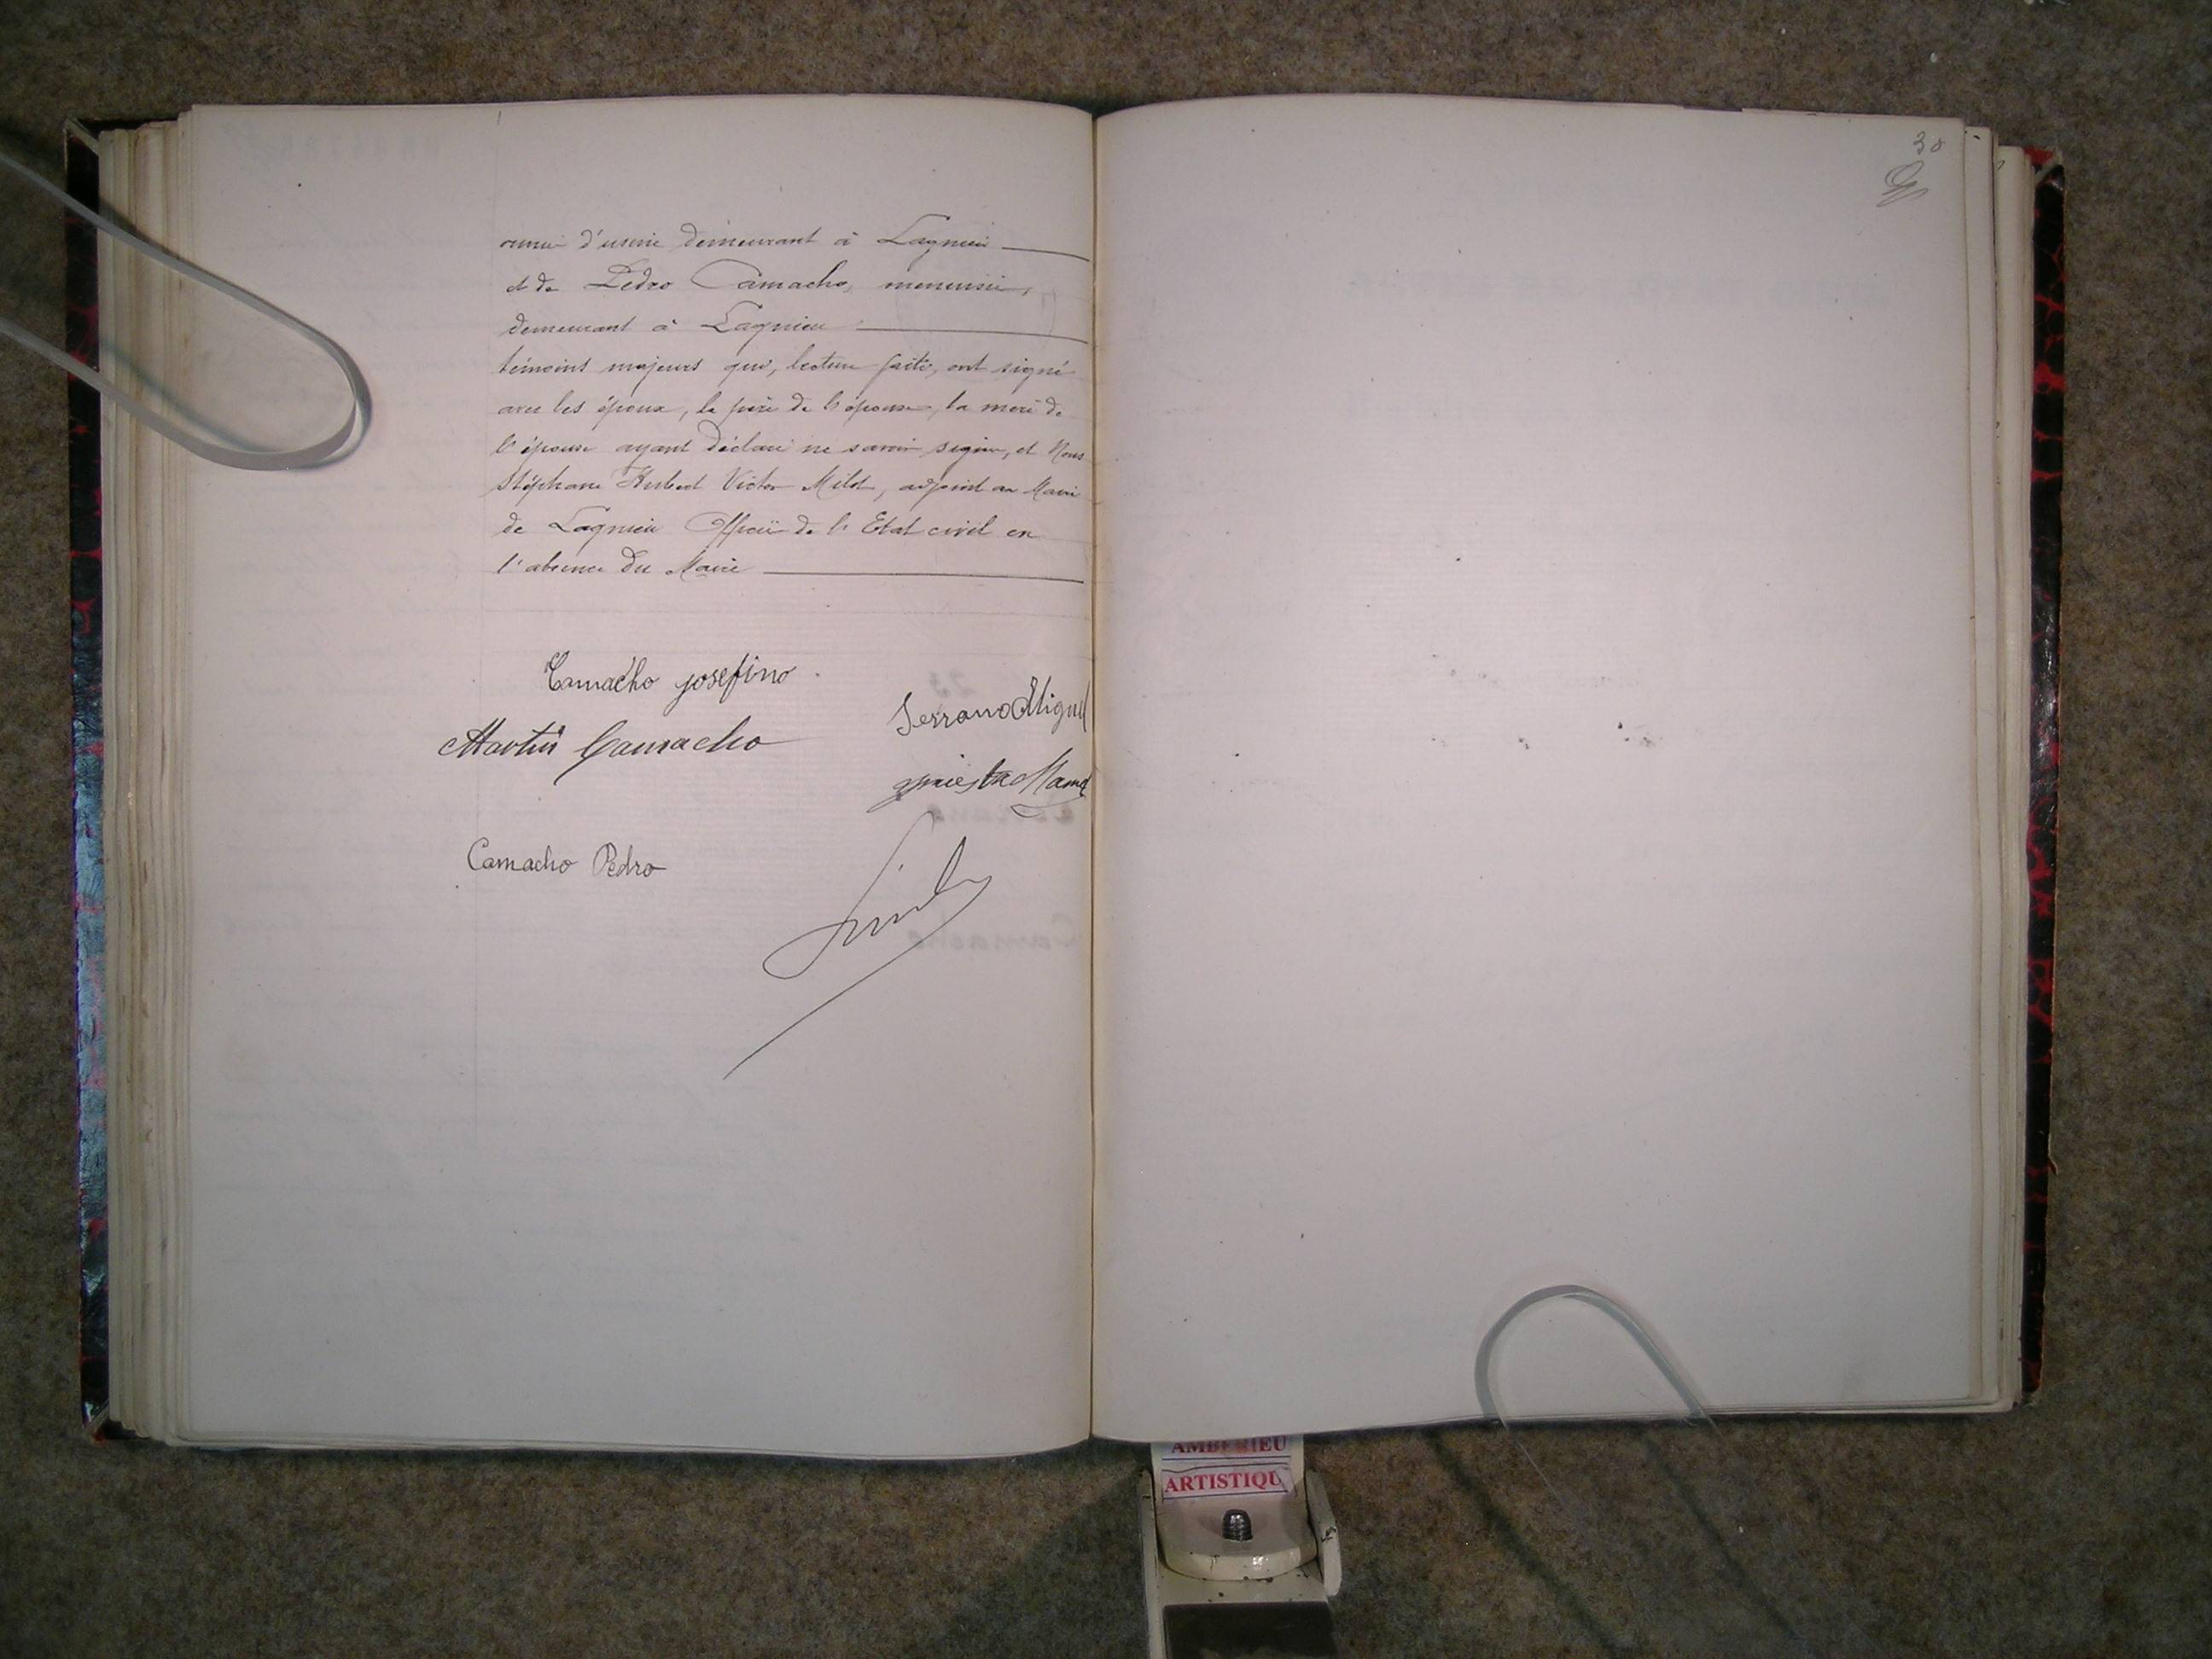 30
ouvrier d'usine demeurant à Lagnieu
et de Pedro Camacho, menuisier,
demeurant à Lagnieu
témoins majeurs qui, lecture faite, ont signé
avec les époux, le père de l'épouse, la mère de
l'épouse ayant déclaré ne savoir signer, et Nous
Stéphane Hubert Victor Milot, adjoint au Maire
de Lagnieu Officier de l'Etat civil en
l'absence du Maire
Camacho josefino
Serrano Miguel
Martin Camacho
Camacho Pedro
AMBERIEU
ARTISTIQU